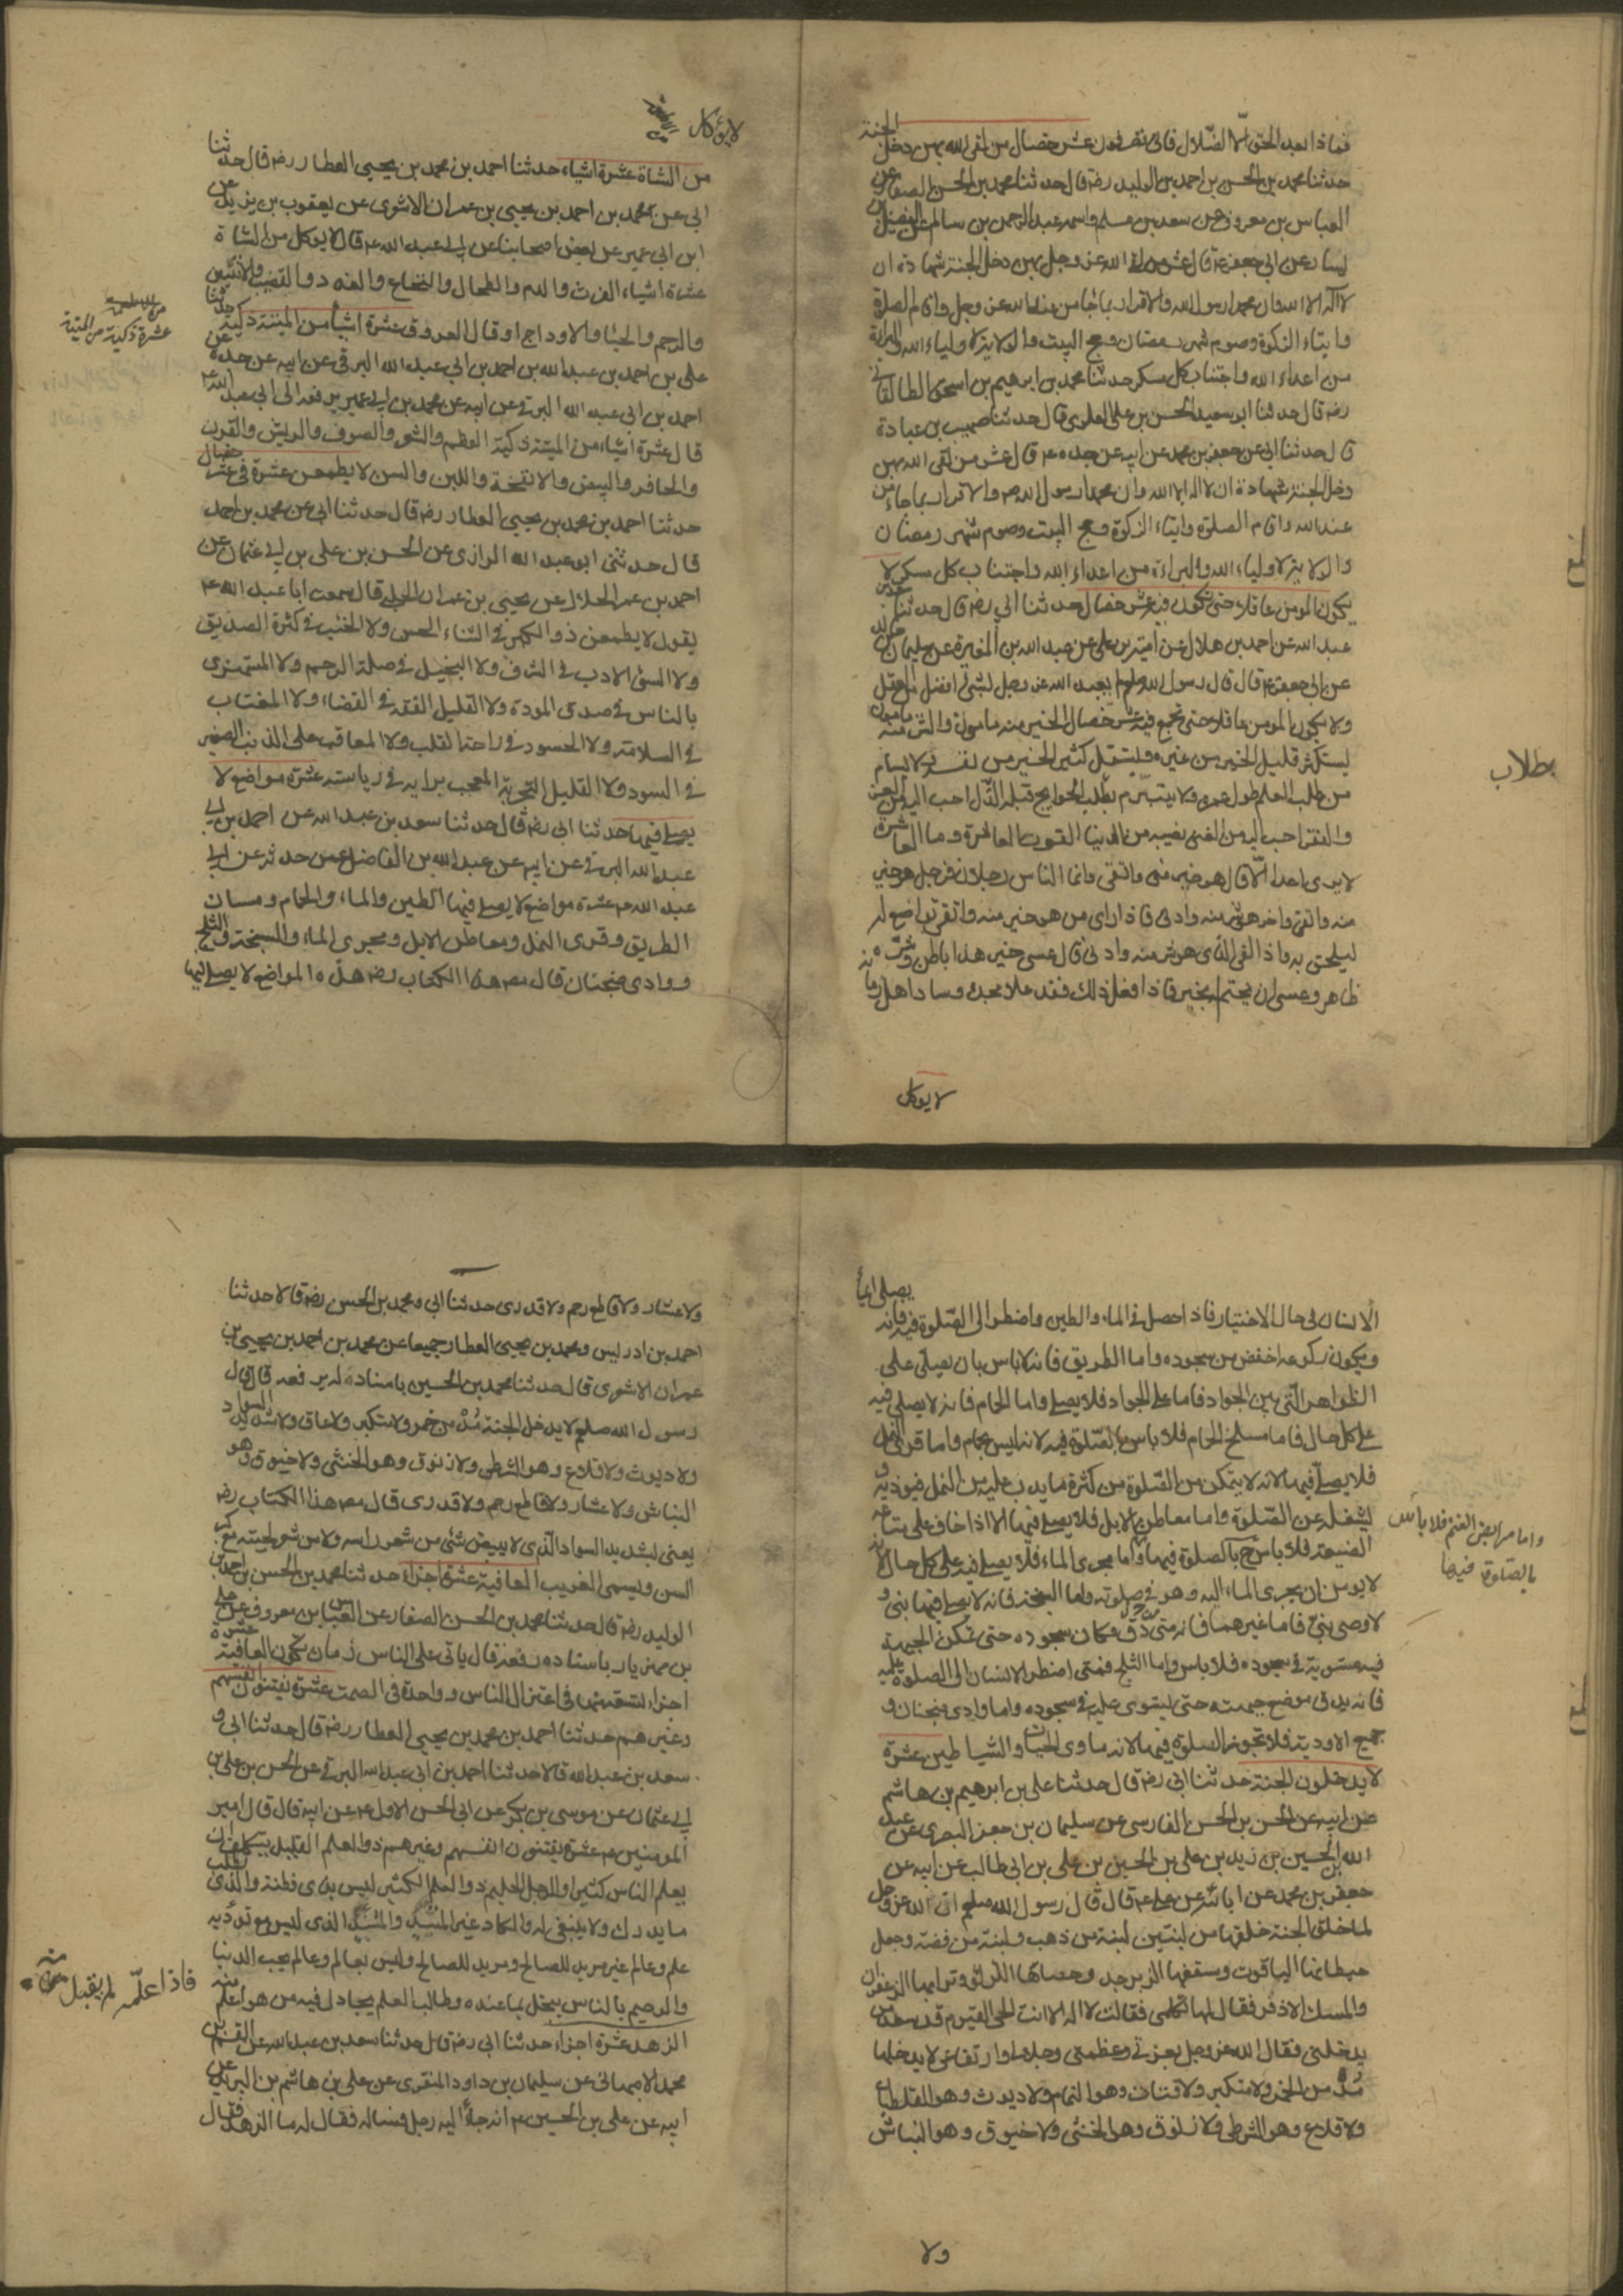 فماذا بعد الحق الا الضلال فانى تصرفون عشر خصال من لقى الله بهن دخل الجنة
حدثنا محمد بن الحسن بن احمد بن الوليد رضه قال حدثنا محمد بن الحسن الصفار عن
العباس بن معروف عن سعدن بن مسلم واسمه عبد الرحمن بن سالم عن الفضيل بن
يسار عن ابي جعفر ع قال عشر من لقى الله عز وجل بهن دخل الجنة شهادة ان
لا اله الا الله وان محمدا رسول الله والاقرار بما جاء من عند الله عز وجل واقام الصلوة
وايتاء الزكوة وصوم شهر رمضان وحج البيت والولاية لاولياء الله والبراءة
من اعداء الله واجتناب كل مسكر حدثنا محمد بن ابرهيم بن اسحق الطالقاني
رضه قال حدثنا ابو سعيد الحسن بن علي العلوى قال حدثنا صهيب بن عبادة
قال حدثنا ابي عن جعفر بن محمد عن ابيه عن جده ع قال عشر من لقى الله بهن
دخل الجنة شهادة ان لا اله الا الله وان محمدا رسول الله ص والاقرار بما جاء من
عند الله واقام الصلوة وايتاء الزكوة وحج البيت وصوم شهر رمضان
والولاية لاولياء الله والبراءة من اعداء الله واجتناب كل مسكر لا
يكون المومن عاقلا حتى تكون فيه عشر خصال حدثنا ابي رضه قال حدثنا سعد بن
عبد الله عن احمد بن هلال عن امية بن علي عن عبد الله بن المغيرة عن سليمان بن خالد
عن ابي جعفر ع قال قال رسول الله صلعم لم يعبد الله عز وجل بشئ افضل من العقل
ولا يكون المومن عاقلا حتى تجمع فيه عشر خصال الخير منه مامول والشر منه مامون
يستكثر قليل الخير من غيره ويستقل كثير الخير من نفسه ولا يسام
من طلب العلم طول عمره ولا يتبرم بطلب الحوايج قبله الذل احب اليه من العز
بطلاب
والفقر احب اليه من الغنى نصيبه من الدنيا القوت العاشرة وما العاشرة
لا يرى احدا الا قال هو خير منى واتقى وانما الناس رجلان فرجل هو خير
منه واتقى واخر هو شر منه وادنى فاذا راى من هو خير منه واتقى تواضع له
ليلحق به واذا لقى الذى هو شر منه وادنى قال عسى خير هذا باطن وشره
ظاهر وعسى ان يختم له بخير فاذا فعل ذلك فقد علا مجده وساد اهل زمانه
لا يوكل
لا يؤكل
من الشاة عشرة اشياء حدثنا احمد بن محمد بن يحيى العطار رضه قال حدثنا
ابي عن محمد بن احمد بن يحيى بن عمران الاشعرى عن يعقوب بن يزيد عن
ابن ابي عمير عن بعض اصحابنا عن ابي عبد الله ع قال لا يوكل من الشاة
عشرة اشياء الفرث والدم والطحال والنخاع والغدد والقضيب والانثيين
والرحم والحيا والاوداج او قال العروق عشرة اشيا من الميتة ذكية حدثنا
من الاطعمة
عشرة ذكية من الميتة
علي بن احمد بن عبد الله بن احمد بن ابي عبد الله البرقى عن ابيه عن جده عن
احمد بن ابي عبد الله البرقى عن ابيه عن محمد بن ابي عمير يرفعه الى ابي عبد الله ع
قال عشرة اشياء من الميتة ذكية العظم والشعر والصوف والريش والقرن
والحافر والبيض والانفخة واللبن والسن لا يطمعن عشرة فى عشر خصال
حدثنا احمد بن محمد بن يحيى العطار رضه قال حدثنا ابي عن محمد بن احمد
قال حدثنى ابو عبد الله الرازى عن الحسن بن علي بن ابي عثمان عن
احمد بن عمر الحلال عن يحيى بن عمران الحلبى قال سمعت ابا عبد الله ع
يقول لا يطمعن ذو الكبر فى الثناء الحسن ولا الخب فى كثرة الصديق
ولا السئ الادب فى الشرف ولا البخيل فى صلة الرحم ولا المستهزى
بالناس فى صدق المودة ولا القليل الفقه فى القضاء ولا المغتاب
فى السلامة ولا الحسود فى راحة القلب ولا المعاقب على الذنب الصغير
فى السودد ولا القليل التجربة المعجب برايه فى رياسته عشرة مواضع لا
يصلى فيها حدثنا ابي رضه قال حدثنا سعد بن عبد الله عن احمد بن ابي
عبد الله البرقى عن ابيه عن عبد الله بن الفاضل عمن حدثه عن ابي
عبد الله ع عشرة مواضع لا يصلى فيها الطين والماء والحمام ومسان
الطريق وقرى النمل ومعاطن الابل ومجرى الماء والسبخة والثلج
ووادى ضجنان قال مص هذا الكتاب رضه هذه المواضع لا يصلى فيها
الانسان فى حال الاختيار فاذا حصل فى الماء والطين واضطر الى الصلوة فيه فانه يصلى ايماء
ويكون ركوعه اخفض من سجوده واما الطريق فانه لا باس بان يصلى على
الظواهر التى بين الجواد فاما على الجواد فلا يصلى واما الحمام فانه لا يصلى فيه
على كل حال فاما مسلخ الحمام فلا باس بالصلوة فيه لانه ليس بحمام واما قرى النمل
فلا يصلى فيها لانه لا يتمكن من الصلوة من كثرة ما يدب عليه من النمل فيوذيه و
يشغله عن الصلوة واما معاطن الابل فلا يصلى فيها الا اذا خاف على متاعه
واما مرابض الغنم فلا باس
بالصلوة فيها
الضيعة فلا باس ح بالصلوة فيها واما مجرى الماء فلا يصلى فيه على كل حال لانه
لا يومن ان يجرى الماء اليه وهو فى صلوته واما السبخة فانه لا يصلى فيها نبى و
لا وصى نبى فاما غيرهما فانه متى دق مكان سجوده حتى تمكن الجبهة
فيه مستوية فى سجوده فلا باس واما الثلج فمتى اضطر الانسان الى الصلوة عليه
فانه يدق موضع جبهته حتى يستوى عليه فى سجوده واما وادى ضجنان و
جميع الاودية فلا تجوز الصلوة فيها لانه ماوى الحيات والشياطين عشرة
لا يدخلون الجنة حدثنا ابي رضه قال حدثنا علي بن ابرهيم بن هاشم
عن ابيه عن الحسن بن الحسن الفارسى عن سليمان بن جعفر البصرى عن عبد
الله بن الحسين بن زيد بن علي بن الحسين بن علي بن ابي طالب عن ابيه عن
جعفر بن محمد عن ابائه عن علي ع قال قال رسول الله صلعم ان الله عز وجل
لما خلق الجنة خلقها من لبنتين لبنة من ذهب ولبنة من فضة وجعل
حيطانها الياقوت وسقفها الزبرجد وحصاها اللؤلؤ وترابها الزعفران
والمسك الاذفر فقال لها تكلمى فقالت لا اله الا انت الحى القيوم قد سعد من
يدخلنى فقال الله عز وجل بعزتى وعظمتى وجلالى وارتفاعى لا يدخلها
مدمن الخمر ولا متكبر ولا قتات وهو النمام ولا ديوث وهو القلطبان
ولا قلاع وهو الشرطى ولا زنوق وهو الخنثى ولا خيوق وهو النباش
ولا
ولا عشار ولا قاطع رحم ولا قدرى حدثنا ابي ومحمد بن الحسن رضه قالا حدثنا
احمد بن ادريس ومحمد بن يحيى العطار جميعا عن محمد بن احمد بن يحيى بن
عمران الاشعرى قال حدثنا محمد بن الحسين باسناده له يرفعه قال قال
رسول الله صلعم لا يدخل الجنة مدمن خمر ولا متكبر ولا عاق ولا شديد السواد
ولا ديوث ولا قلاع وهو الشرطى ولا زنوق وهو الخنثى ولا خيوق وهو
النباش ولا عشار ولا قاطع رحم ولا قدرى قال مص هذا الكتاب رضه
يعنى بشديد السواد الذى لا يبيض شئ من شعر راسه ولا من شعر لحيته مع كبر
السن ويسمى الغربيب العافية عشرة اجزاء حدثنا محمد بن الحسن بن احمد بن
الوليد رضه قال حدثنا محمد بن الحسن الصفار عن العباس بن معروف عن علي
بن مهزيار باسناده رفعه قال ياتى على الناس زمان تكون العافية عشرة
اجزاء تسعة منها فى اعتزال الناس وواحدة فى الصمت عشرة يفتنون انفسهم
وغيرهم حدثنا احمد بن محمد بن يحيى العطار رضه قال حدثنا ابي و
سعد بن عبد الله قالا حدثنا احمد بن ابي عبد الله البرقى عن الحسن بن علي بن
ابي عثمان عن موسى بن بكر عن ابي الحسن الاول ع عن ابيه قال قال امير
المومنين ع عشرة يفتنون انفسهم وغيرهم ذو العلم القليل يتكلف ان
يعلم الناس كثيرا والرجل الحليم ذو العلم الكثير ليس بذى فطنة والذى يطلب
ما يدرك ولا ينبغى له والكاد غير المتئد والمتئد الذى ليس مع تؤدته
علم وعالم غير مريد للصلاح ومريد للصلاح وليس بعالم وعالم يحب الدنيا
والرحيم بالناس يبخل بما عنده وطالب العلم يجادل فيه من هو اعلم منه
فاذا علمه لم يقبل منه
الزهد عشرة اجزاء حدثنا ابي رضه قال حدثنا سعد بن عبد الله عن القسم بن
محمد الاصبهانى عن سليمان بن داود المنقرى عن علي بن هاشم بن البريد عن
ابيه عن علي بن الحسين ع انه جاء اليه رجل فساله فقال له ما الزهد فقال